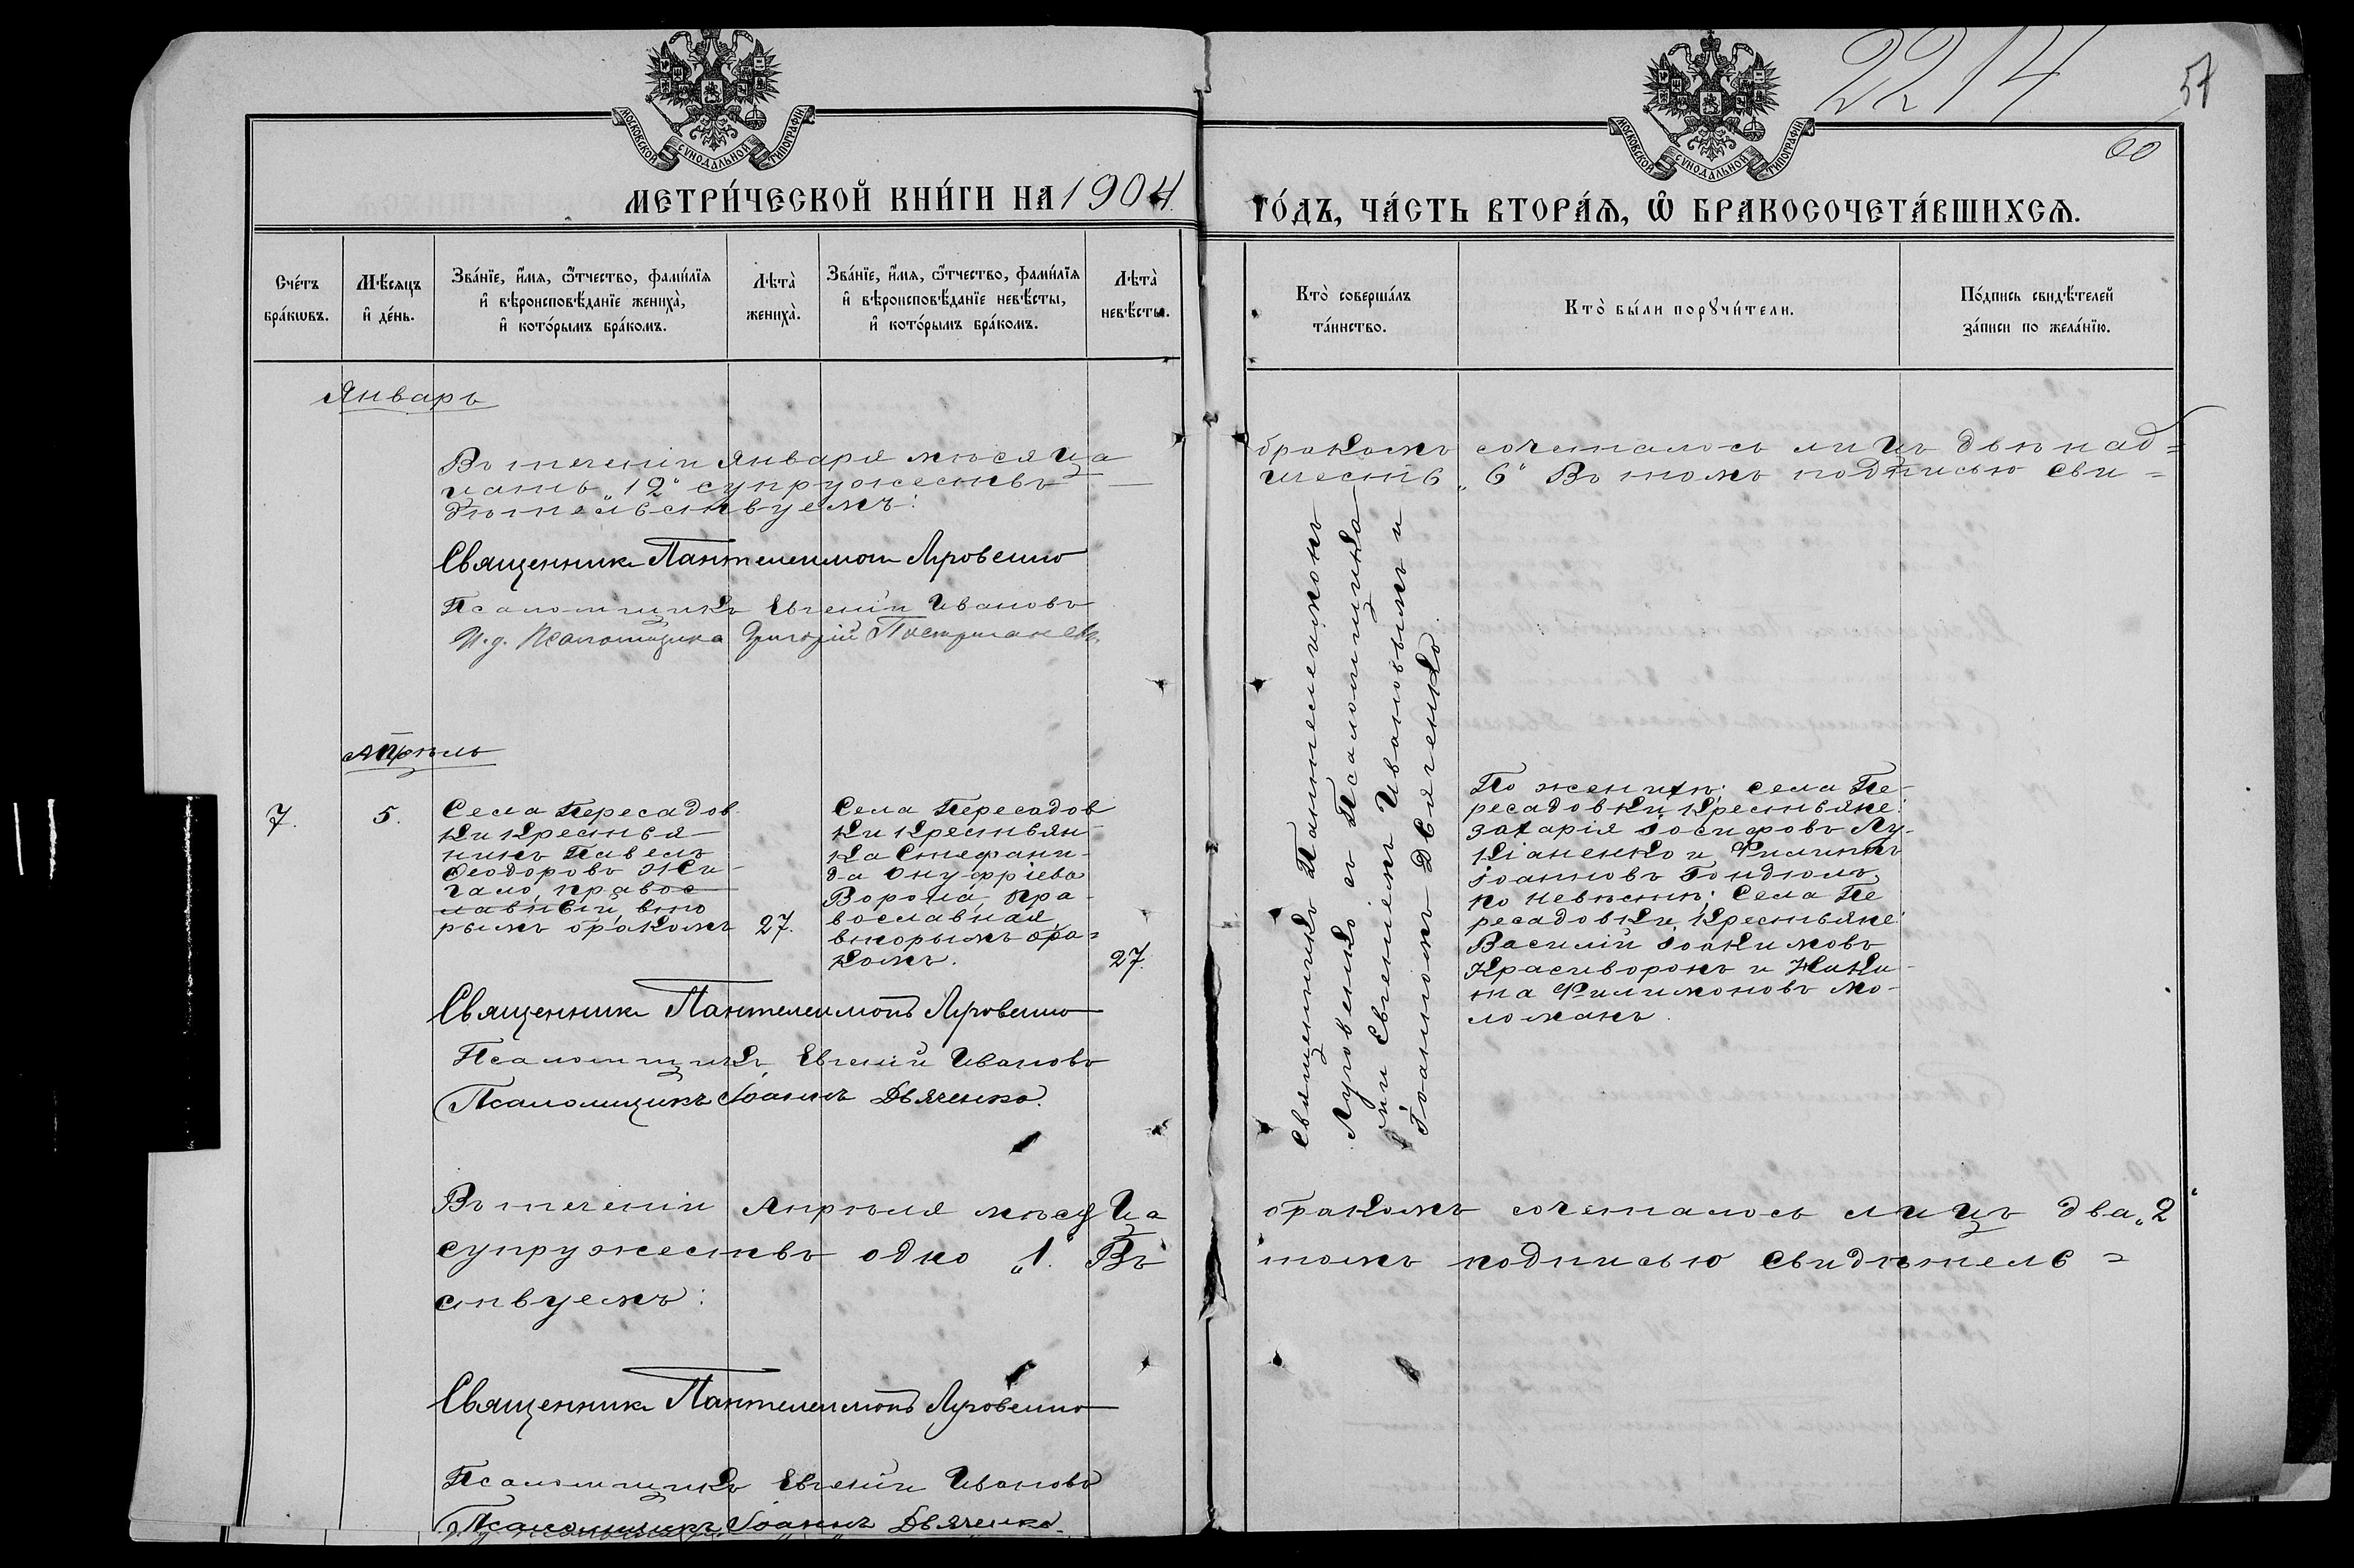 2214
57
60
МОСКОВСКОЙ СѴНОДАЛЬНОЙ ТИПОГРАФІИ
МОСКОВСКОЙ СѴНОДАЛЬНОЙ ТИПОГРАФІИ
МЕТРИ́ЧЕСКОЙ КНИ́ГИ НА 1904
ГО́ДЪ, ЧА́СТЬ ВТОРА́Ѧ, Ѡ҆ БРАКОСОЧЕТА́ВШИХСѦ.
Сче́тъ
бра́кѡвъ.
Мѣ́сяцъ
и҆ де́нь.
Зва́нїе, и҆́мя, ѻ҆́тчество, фами́лїя
и҆ вѣроисповѣ́данїе жениха̀,
и҆ кото́рымъ бра́комъ.
Лѣта̀
жениха̀.
Зва́нїе, и҆́мя, ѻ҆́тчество, фами́лїя
и҆ вѣроисповѣ́данїе невѣ́сты,
и҆ кото́рымъ бра́комъ.
Лѣта̀
невѣ́сты.
Кто̀ соверша́лъ
та́инство.
Кто̀ бы́ли порꙋчи́тели.
По́дпись свидѣ́телей
за́писи по жела́нїю.
Январь
Въ теченіи Января мѣсяца бракомъ сочеталось лицъ двѣнад=
цать „12" супружествъ — шесть „6" Въ томъ подписью сви=
дѣтельствуемъ:
Священникъ Пантелеимонъ Яровенко
Псаломщикъ Евгеній Ивановъ
И.д. Псаломщика Григорій
Апрѣль
7.
5.
Села Пересадов
ки крестья-
нинъ Павелъ
Ѳеодоровъ Жи-
гало, правос
лавный, вто
рымъ бракомъ
27.
Села Пересадов
ки крестьян-
ка Стефани-
да Онуфріева
Ворона, пра-
вославная
вторымъ бра=
комъ.
27.
Священникъ Пантелеимонъ
Яровенко съ Псаломщика
ми Евгеніемъ Ивановымъ и
Іоанномъ Дьяченко.
По женихѣ: села Пе-
ресадовки, крестьяне:
Захарія Іосифовъ Лу-
кіаненко и Филиппъ
Іоанновъ Гондюлъ,
по невѣстѣ: села Пе
ресадовки, крестьяне:
Василій Іоакимовъ
Красиворонъ и Ники-
та Филимоновъ Мо-
ломанъ.
Священникъ Пантелеимонъ Яровенко
Псаломщикъ Евгеній Ивановъ
Псаломщикъ Іоаннъ Дьяченко.
Въ теченіи Апрѣля мѣсяца бракомъ сочеталось лицъ два „2"
супружествъ одно „1" Въ томъ подписью свидѣтель=
ствуемъ:
Священникъ Пантелеимонъ Яровенко
Псаломщикъ Евгеній Ивановъ
Псаломщикъ Іоаннъ Дьяченко.